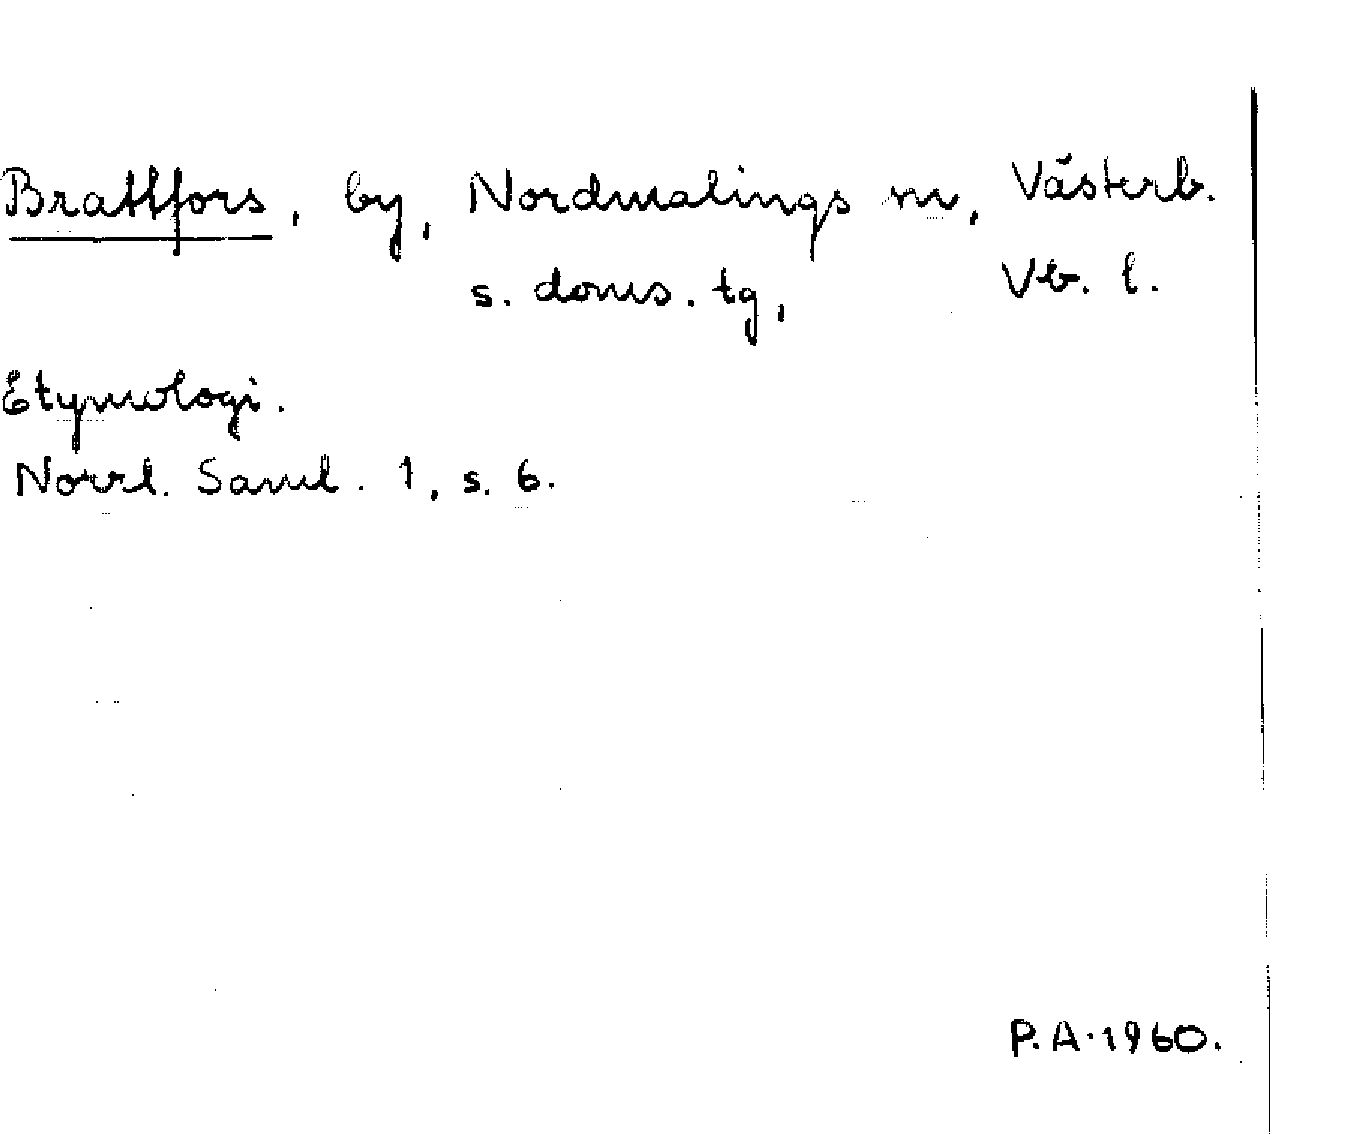 Brattfors, by, Nordmalings sn, Västerb.
s. doms. tg, Vb. l.
Etymologi.
Norrl. Saml. 1, s. 6.
P.A. 1960.